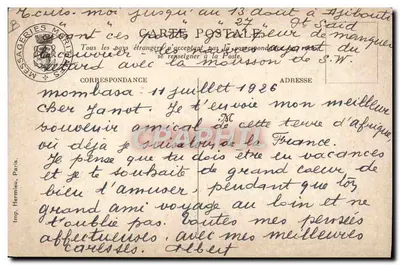 Ecris-moi jusqu'au 13 août à Djibouti
" " " 27 " Pt Saïd
Sont ces dates ... peur de manquer
le courrier ... ayant du
retard avec la mousson de S.W.
CARTE POSTALE
Tous les pays étrangers n'acceptent pas la correspondance au recto
se renseigner à la Poste
MESSAGERIES MARITIMES
CORRESPONDANCE
ADRESSE
Mombasa 11 juillet 1926
Cher Janot. Je t'envoie mon meilleur
souvenir amical de cette terre d'Afrique
M
où déjà je suis loin de la France.
Je pense que tu dois être en vacances
et je te souhaite de grand coeur de
bien t'amuser pendant que ton
grand ami voyage au loin et ne
t'oublie pas. Toutes mes pensées
affectueuses avec mes meilleures
caresses. Albert
Imp. Hermieu, Paris.